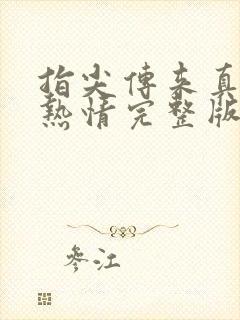 指尖傳来真
熱情完整版
參江